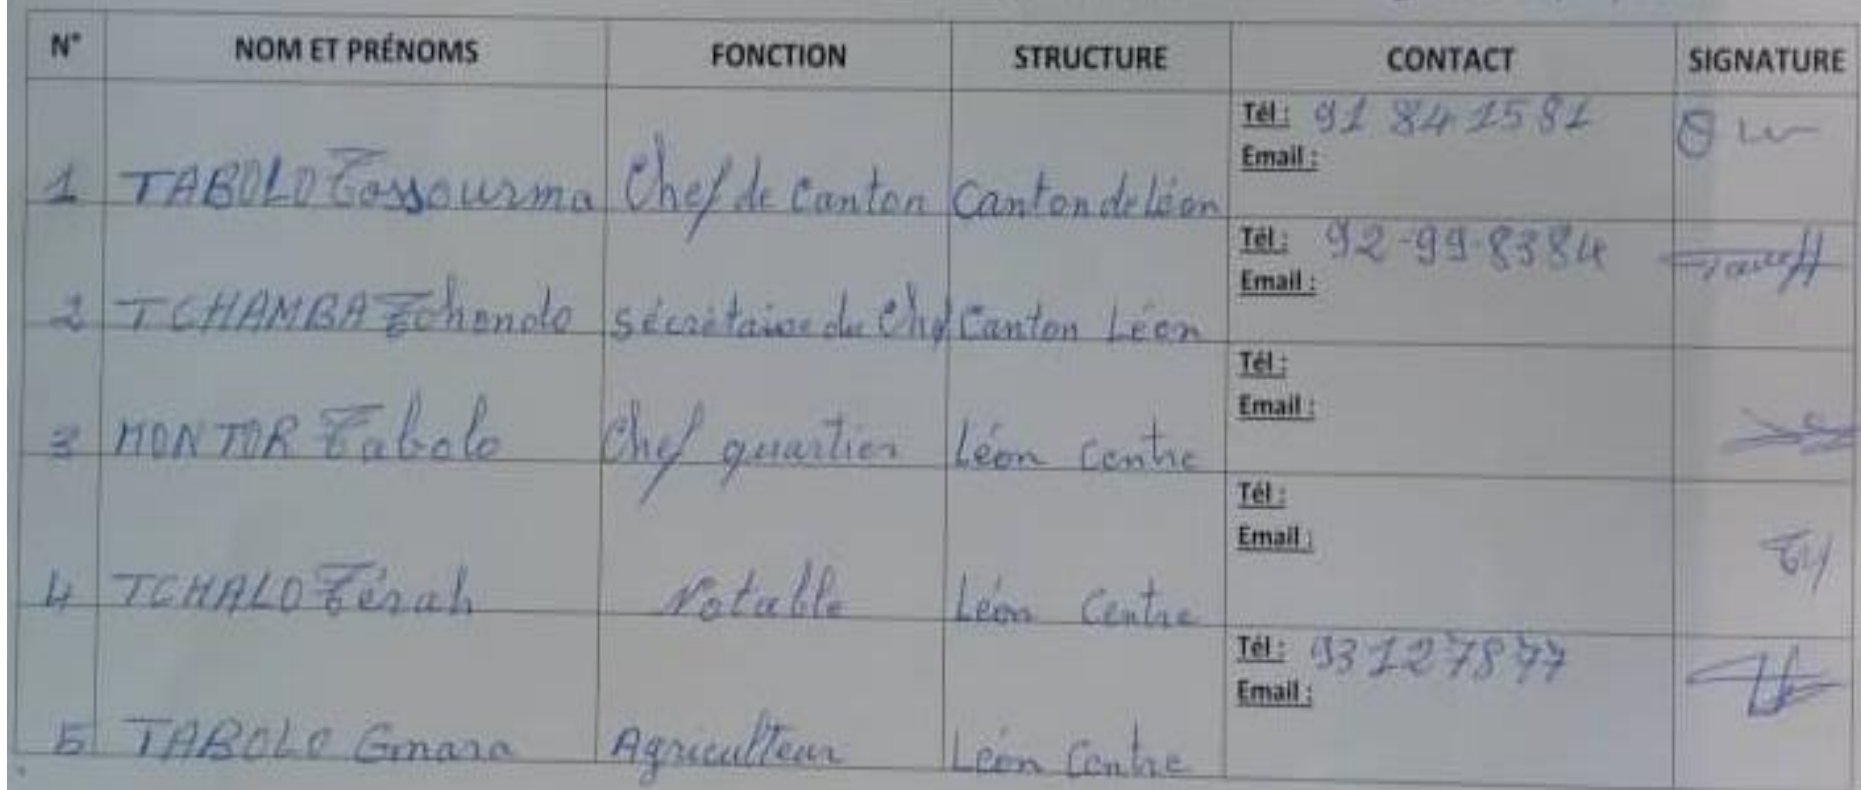 N° NOM ET PRÉNOMS FONCTION STRUCTURE CONTACT SIGNATURE
Tél : 91 84 15 81
Email :
1 TABOLO Tossourma Chef de Canton Canton de léon
Tél : 92-99-8384
Email :
2 TCHAMBA Tchondo sécrétaire du Chef Canton Léon
Tél :
Email :
3 MONTOR Tabolo Chef quartier Léon Centre
Tél :
Email :
4 TCHALO Térah Notable Léon Centre
Tél : 93 12 78 77
Email :
5 TABOLO Gmara Agriculteur Léon Centre